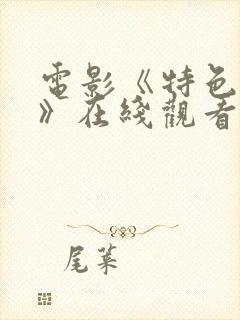 電影《特色
》在綫觀看
尾葉